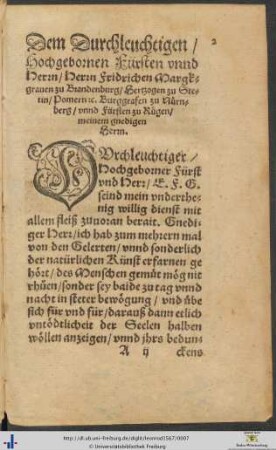 2
Dem Durchleuchtigen /
Hochgebornen Fürsten vnnd
Herrn / Herrn Fridrichen Marggrauen
zu Brandenburg / Hertzogen zu Stetin
/ Pomern ꝛc. Burggrafen zu Nürnberg
/ vnnd Fürsten zu Rügen /
meinem gnedigen
Herrn.
DVrchleuchtiger /
Hochgeborner Fürst
vnd Herr / E. F. G.
seind mein vnderthenig
willig dienst mit
allem fleiß zuuoran berait. Gnediger
Herr / ich hab zum mehrern mal
von den Gelerten / vnnd sonderlich
der natürlichen Künst erfarnen gehört
/ des Menschen gemüt mög nit
rhüen / sonder sey baide zu tag vnnd
nacht in steter bewögung / vnd übe
sich für vnd für / darauß dann etlich
vntödtlicheit der Seelen halben
wöllen anzeigen / vnnd jhrs bedun-
A ij ckens
http://dl.ub.uni-freiburg.de/diglit/textmod1567/0007
© Universitätsbibliothek Freiburg